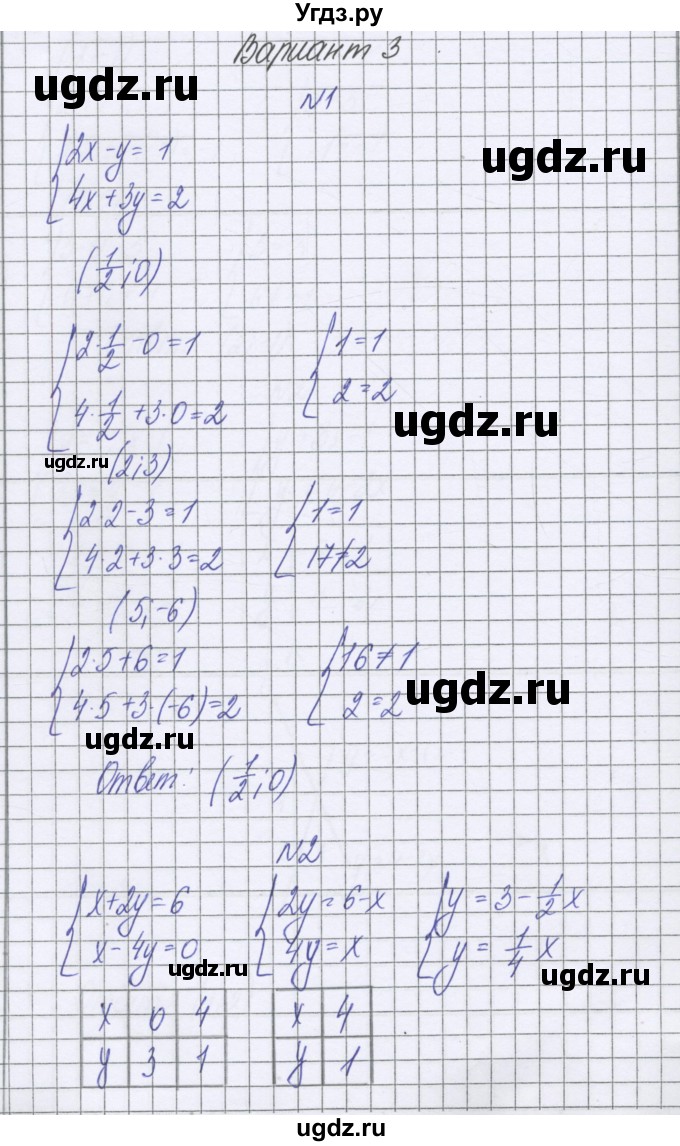 Угдз.ру
Вариант 3
ugdz.ru
N1
ugdz.ru
{2x - y = 1
4x + 3y = 2
(1/2; 0)
{2·1/2 - 0 = 1
4·1/2 + 3·0 = 2
{1 = 1
2 = 2
ugdz.ru
ugdz.ru
(2; 3)
{2·2 - 3 = 1
4·2 + 3·3 = 2
{1 = 1
17 ≠ 2
(5; -6)
{2·5 + 6 = 1
4·5 + 3·(-6) = 2
{16 ≠ 1
2 = 2
ugdz.ru
ugdz.ru
Ответ: (1/2; 0)
N2
{x + 2y = 6
x - 4y = 0
{2y = 6 - x
4y = x
{y = 3 - 1/2 x
y = 1/4 x
ugdz.ru
ugdz.ru
x 0 4
y 3 1
x 4
y 1
ugdz.ru